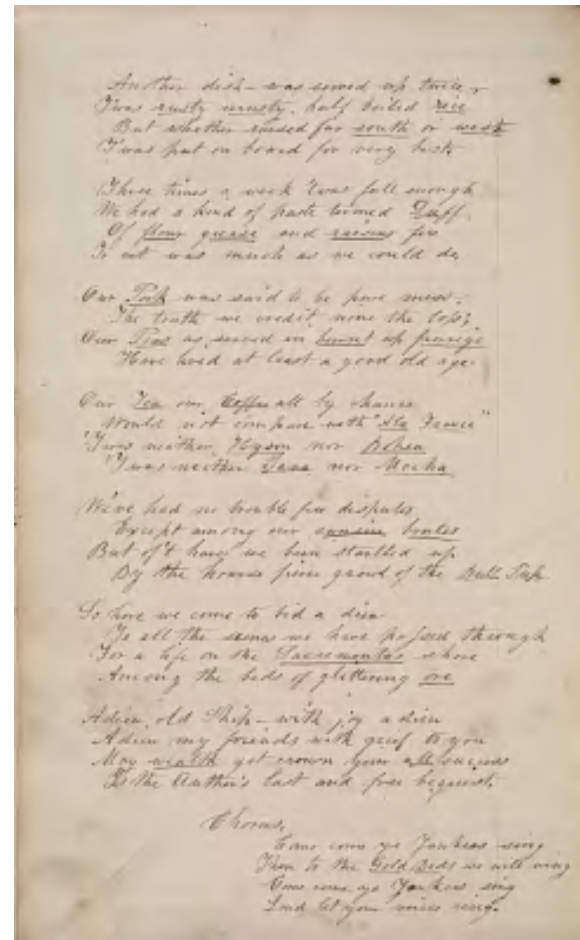 Another dish - was served up twice,
'Twas rusty musty, half boiled rice
But whether raised far south or west
'Twas put on board for very best.
Three times a week 'twas full enough
We had a kind of paste termed Duff.
Of flour grease and raisins few
To eat was much as we could do,
Our Pork was said to be pure mess,
The truth we credit none the less;
Our Peas as served in burnt up
Have lived at least a good old age.
Our Tea our Coffee all by chance
Would not compare with
'Twas neither Hyson nor Bohea
'Twas neither Java nor Mocha
We've had no trouble few disputes
Except among our canine brutes
But oft have we been startled up
By the hoarse fierce growl of the Bull Pup
So here we come to bid adieu
To all the scenes we have passed through
For a life on the Sacramento's shore
Among the beds of glittering ore
Adieu, old Ship - with joy adieu
Adieu my friends with grief to you
May wealth yet crown your success
Is the Author's last and free bequest.
Chorus,
Come come ye Yankees sing
Then to the Gold beds we will wing
Come come ye Yankees sing
Loud let your voices ring.